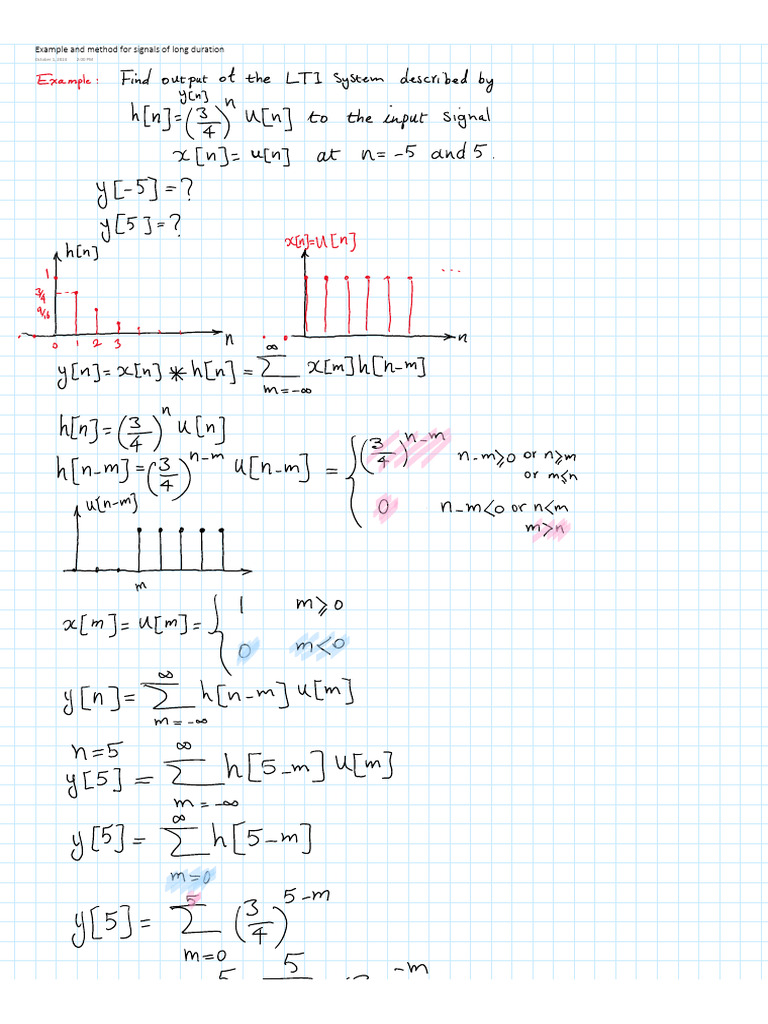 Example and method for signals of long duration
October 1, 2018 3:00 PM
Example: Find output of the LTI system described by
y[n]
h[n]=(3/4)^n u[n] to the input signal
x[n]= u[n] at n= -5 and 5.
y[-5]=?
y[5]=?
h[n]
1
3/4
9/16
0 1 2 3
n
x[n]=u[n]
...
n
y[n]= x[n] * h[n] = ∑_{m=-∞}^{∞} x[m]h[n-m]
h[n]=(3/4)^n u[n]
h[n-m]=(3/4)^{n-m} u[n-m] = { (3/4)^{n-m} n-m⩾0 or n⩾m
or m⩽n
0 n-m<0 or n<m
m>n
u[n-m]
m
x[m]= u[m]= { 1 m⩾0
0 m<0
y[n]= ∑_{m=-∞}^{∞} h[n-m] u[m]
n=5
y[5] = ∑_{m=-∞}^{∞} h[5-m] u[m]
y[5]= ∑_{m=0}^{∞} h[5-m]
y[5]= ∑_{m=0}^{5} (3/4)^{5-m}
5 5 -m